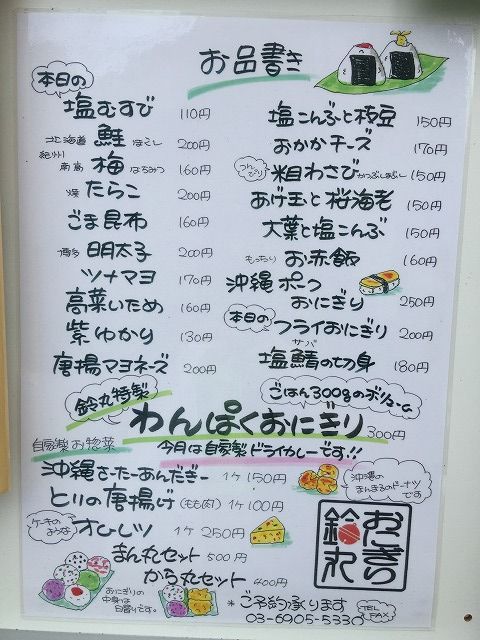 お品書き
本日の
塩むすび 110円
北海道 鮭 ほぐし 200円
紀州南高 梅 はちみつ 160円
たらこ 200円
ごま昆布 160円
博多 明太子 200円
ツナマヨ 170円
高菜いため 160円
紫ゆかり 130円
唐揚マヨネーズ 200円
塩こんぶと枝豆 150円
おかかチーズ 170円
粗わさび 150円
あげ玉と桜海老 150円
大葉と塩こんぶ 150円
もっちり お赤飯 160円
沖縄ポーク
おにぎり 250円
本日の フライおにぎり 200円
塩鯖の切身 180円
サバ
ごはん300gのボリューム
鈴丸特製
わんぱくおにぎり 300円
今月は自家製ドライカレーです!!
自家製お惣菜
沖縄さーたーあんだぎー 1ケ 150円
沖縄の
まんまるのドーナツ
です
とりの唐揚げ (もも肉) 1ケ 100円
ケーキのような オムレツ 1ケ 250円
まん丸セット 500円
から丸セット 400円
おにぎりの
中身は
日替りです。
おにぎり
鈴丸
*ご予約承ります
TEL
FAX
03-6905-5330